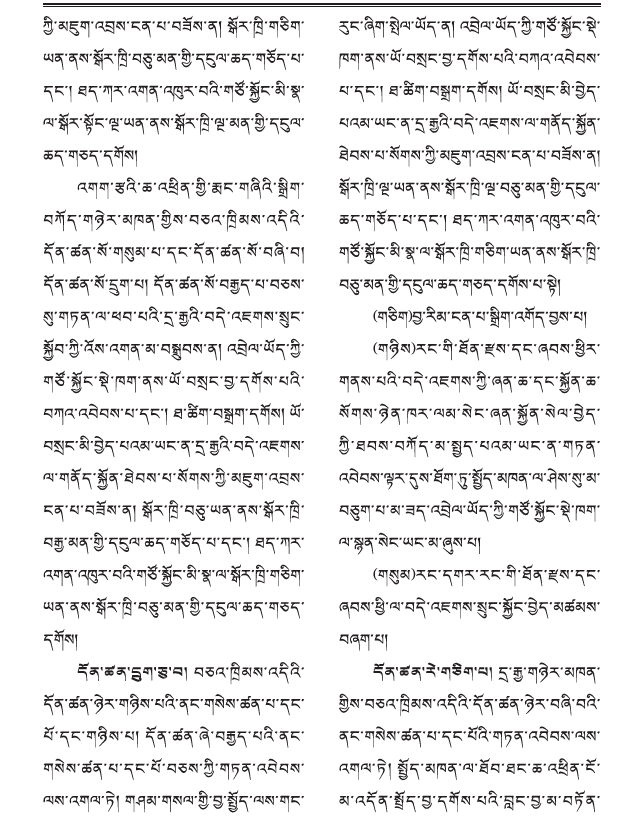 ཀྱི་མཇུག་འབྲས་ངན་པ་བཟོས་ན། སྒོར་ཁྲི་གཅིག་
ཡན་ནས་སྒོར་ཁྲི་བཅུ་མན་གྱི་དངུལ་ཆད་གཅོད་པ་
དང་། ཐད་ཀར་འགན་འཁུར་བའི་གཙོ་སྐྱོང་མི་སྣ་
ལ་སྒོར་སྟོང་ལྔ་ཡན་ནས་སྒོར་ཁྲི་ལྔ་མན་གྱི་དངུལ་
ཆད་གཅད་དགོས།
འགག་རྩའི་ཆ་འཕྲིན་གྱི་རྨང་གཞིའི་སྒྲིག་
བཀོད་གཉེར་མཁན་གྱིས་བཅའ་ཁྲིམས་འདིའི་
དོན་ཚན་སོ་གསུམ་པ་དང་དོན་ཚན་སོ་བཞི་བ།
དོན་ཚན་སོ་དྲུག་པ། དོན་ཚན་སོ་བརྒྱད་པ་བཅས་
སུ་གཏན་ལ་ཕབ་པའི་དྲ་རྒྱའི་བདེ་འཇགས་སྲུང་
སྐྱོབ་ཀྱི་འོས་འགན་མ་བསྒྲུབས་ན། འབྲེལ་ཡོད་ཀྱི་
གཙོ་སྐྱོང་སྡེ་ཁག་ནས་ཡོ་བསྲང་བྱ་དགོས་པའི་
བཀའ་འབེབས་པ་དང་། ཐ་ཚིག་བསྒྲག་དགོས། ཡོ་
བསྲང་མི་བྱེད་པའམ་ཡང་ན་དྲ་རྒྱའི་བདེ་འཇགས་
ལ་གནོད་སྐྱོན་ཐེབས་པ་སོགས་ཀྱི་མཇུག་འབྲས་
ངན་པ་བཟོས་ན། སྒོར་ཁྲི་བཅུ་ཡན་ནས་སྒོར་ཁྲི་
བརྒྱ་མན་གྱི་དངུལ་ཆད་གཅོད་པ་དང་། ཐད་ཀར་
འགན་འཁུར་བའི་གཙོ་སྐྱོང་མི་སྣ་ལ་སྒོར་ཁྲི་གཅིག་
ཡན་ནས་སྒོར་ཁྲི་བཅུ་མན་གྱི་དངུལ་ཆད་གཅད་
དགོས།
དོན་ཚན་དྲུག་ཅུ་བ། བཅའ་ཁྲིམས་འདིའི་
དོན་ཚན་ཉེར་གཉིས་པའི་ནང་གསེས་ཚན་པ་དང་
པོ་དང་གཉིས་པ། དོན་ཚན་ཞེ་བརྒྱད་པའི་ནང་
གསེས་ཚན་པ་དང་པོ་བཅས་ཀྱི་གཏན་འབེབས་
ལས་འགལ་ཏེ། གཤམ་གསལ་གྱི་བྱ་སྤྱོད་ལས་གང་
རུང་ཞིག་སྤེལ་ཡོད་ན། འབྲེལ་ཡོད་ཀྱི་གཙོ་སྐྱོང་སྡེ་
ཁག་ནས་ཡོ་བསྲང་བྱ་དགོས་པའི་བཀའ་འབེབས་
པ་དང་། ཐ་ཚིག་བསྒྲག་དགོས། ཡོ་བསྲང་མི་བྱེད་
པའམ་ཡང་ན་དྲ་རྒྱའི་བདེ་འཇགས་ལ་གནོད་སྐྱོན་
ཐེབས་པ་སོགས་ཀྱི་མཇུག་འབྲས་ངན་པ་བཟོས་ན།
སྒོར་ཁྲི་ལྔ་ཡན་ནས་སྒོར་ཁྲི་ལྔ་བཅུ་མན་གྱི་དངུལ་
ཆད་གཅོད་པ་དང་། ཐད་ཀར་འགན་འཁུར་བའི་
གཙོ་སྐྱོང་མི་སྣ་ལ་སྒོར་ཁྲི་གཅིག་ཡན་ནས་སྒོར་ཁྲི་
བཅུ་མན་གྱི་དངུལ་ཆད་གཅད་དགོས་པ་སྟེ།
(གཅིག)བྱ་རིམ་ངན་པ་སྒྲིག་འགོད་བྱས་པ།
(གཉིས)རང་གི་ཐོན་རྫས་དང་ཞབས་ཕྱིར་
གནས་པའི་བདེ་འཇགས་ཀྱི་ཞན་ཆ་དང་སྐྱོན་ཆ་
སོགས་ཉེན་ཁར་ལམ་སེང་ཞན་སྐྱོན་སེལ་བྱེད་
ཀྱི་ཐབས་བཀོད་མ་སྤྱད་པའམ་ཡང་ན་གཏན་
འབེབས་ལྟར་དུས་ཐོག་ཏུ་སྤྱོད་མཁན་ལ་ཤེས་སུ་མ་
བཅུག་པ་མ་ཟད་འབྲེལ་ཡོད་ཀྱི་གཙོ་སྐྱོང་སྡེ་ཁག་
ལ་སྙན་སེང་ཡང་མ་ཞུས་པ།
(གསུམ)རང་དགར་རང་གི་ཐོན་རྫས་དང་
ཞབས་ཕྱི་ལ་བདེ་འཇགས་སྲུང་སྐྱོང་བྱེད་མཚམས་
བཞག་པ།
དོན་ཚན་རེ་གཅིག་པ། དྲ་རྒྱ་གཉེར་མཁན་
གྱིས་བཅའ་ཁྲིམས་འདིའི་དོན་ཚན་ཉེར་བཞི་བའི་
ནང་གསེས་ཚན་པ་དང་པོའི་གཏན་འབེབས་ལས་
འགལ་ཏེ། སྤྱོད་མཁན་ལ་ཐོབ་ཐང་ཆ་འཕྲིན་ངོ་
མ་འདོན་སྤྲོད་བྱ་དགོས་པའི་བླང་བྱ་མ་བཏོན་